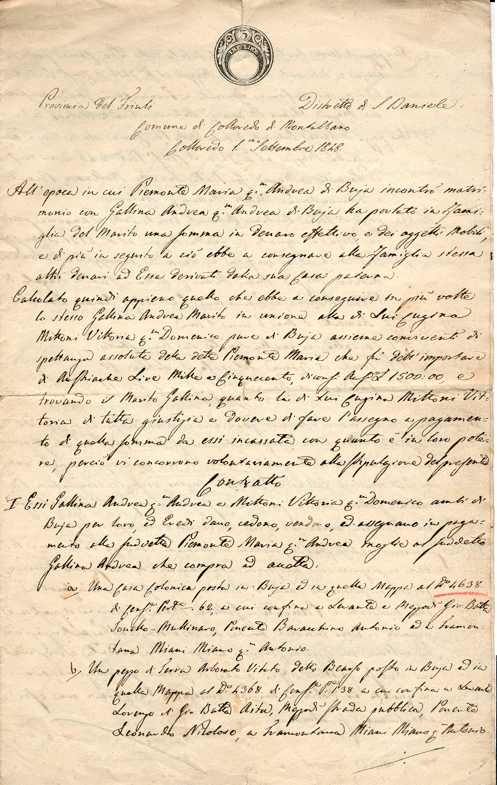 Provincia del Friuli Distretto di S Daniele
Comune di Colloredo di Montalbano
Colloredo 1 Settembre 1848
All'epoca in cui Piemonte Maria q.m Andrea di Buja incontrò matri-
monio con Gallina Andrea q.m Andrea di Buja ha portato in fami-
glia del Marito una somma in denaro effettivo e deo oggetti Mobili,
e di più in seguito a ciò ebbe a consegnare alla famiglia stessa
altri denari ad Essa derivati dalla sua Casa paterna
Calcolato quindi appieno quello che ebbe a conseguire in più volte
lo stesso Gallina Andrea Marito in unione alla di Lui Cugina
Mittoni Vittoria q.m Domenico pure di Buja assieme conviventi di
spettanza assoluta della detta Piemonte Maria che fu dell'importare
di Austriache Lire Mille e Cinquecento, 1500:00, e
trovando il Marito Gallina quanto la di Lui Cugina Mittoni Vit-
toria di tutta giustizia e dovere di fare l'assegno e pagamen-
to di quella somma da essi incassata con quanto è in loro pote-
re, perciò vi concorrono volontariamente alla stipulazione del presente
Contratto
I Essi Gallina Andrea q.m Andrea e Mittoni Vittoria q.m Domenico ambi di
Buja per loro, ed Eredi dano, cedono, vendono, ed assegnano in paga-
mento alla suddetta Piemonte Maria q.m Andrea moglie al suddetto
Gallina Andrea che compra ed accetta.
a. Una Casa Colonica posta in Buja ed in quella Mappa al N.o 4638
di cens. Pert.e 62, a cui confina a Levante e Mezzodì Gio Batta
Molinaro, Ponente Antonio ed a tramon-
tana Miani Miano q.m Antonio.
b. Un pezzo di Terra Arborato Vitato detto posto in Buja ed in
quella Mappa al N.o 4368 di cens. P. 38 a cui confina a Levante
Lorenzo di Gio Batta, Mezzodì strada pubblica, Ponente
Leonardo Nicoloso, a tramontana Miani Miano q.m Antonio